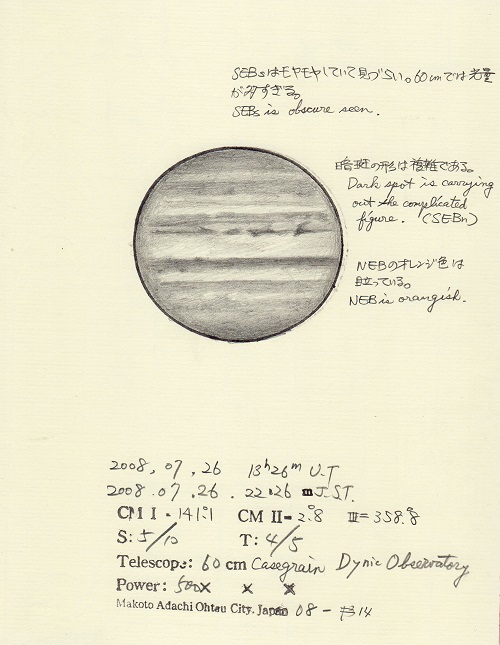 SEBsはモヤモヤしていて見づらい。60cmでは光量
がありすぎる。
SEBs is obscure seen.
暗斑の形は複雑である。
Dark spot is carrying
out the complicated
figure. (SEBn)
NEBのオレンジ色は
目立っている。
NEB is orangish.
2008, 07, 26 13h26m U.T
2008.07.26. 22:26 m J.S.T.
CM I = 141.1 CM II = 2.8 III = 358.8
S: 5/10 T: 4/5
Telescope: 60 cm Casegrain Dynic Observatory
Power: 500X X X
Makoto Adachi Ohtsu City. Japan 08 - 14